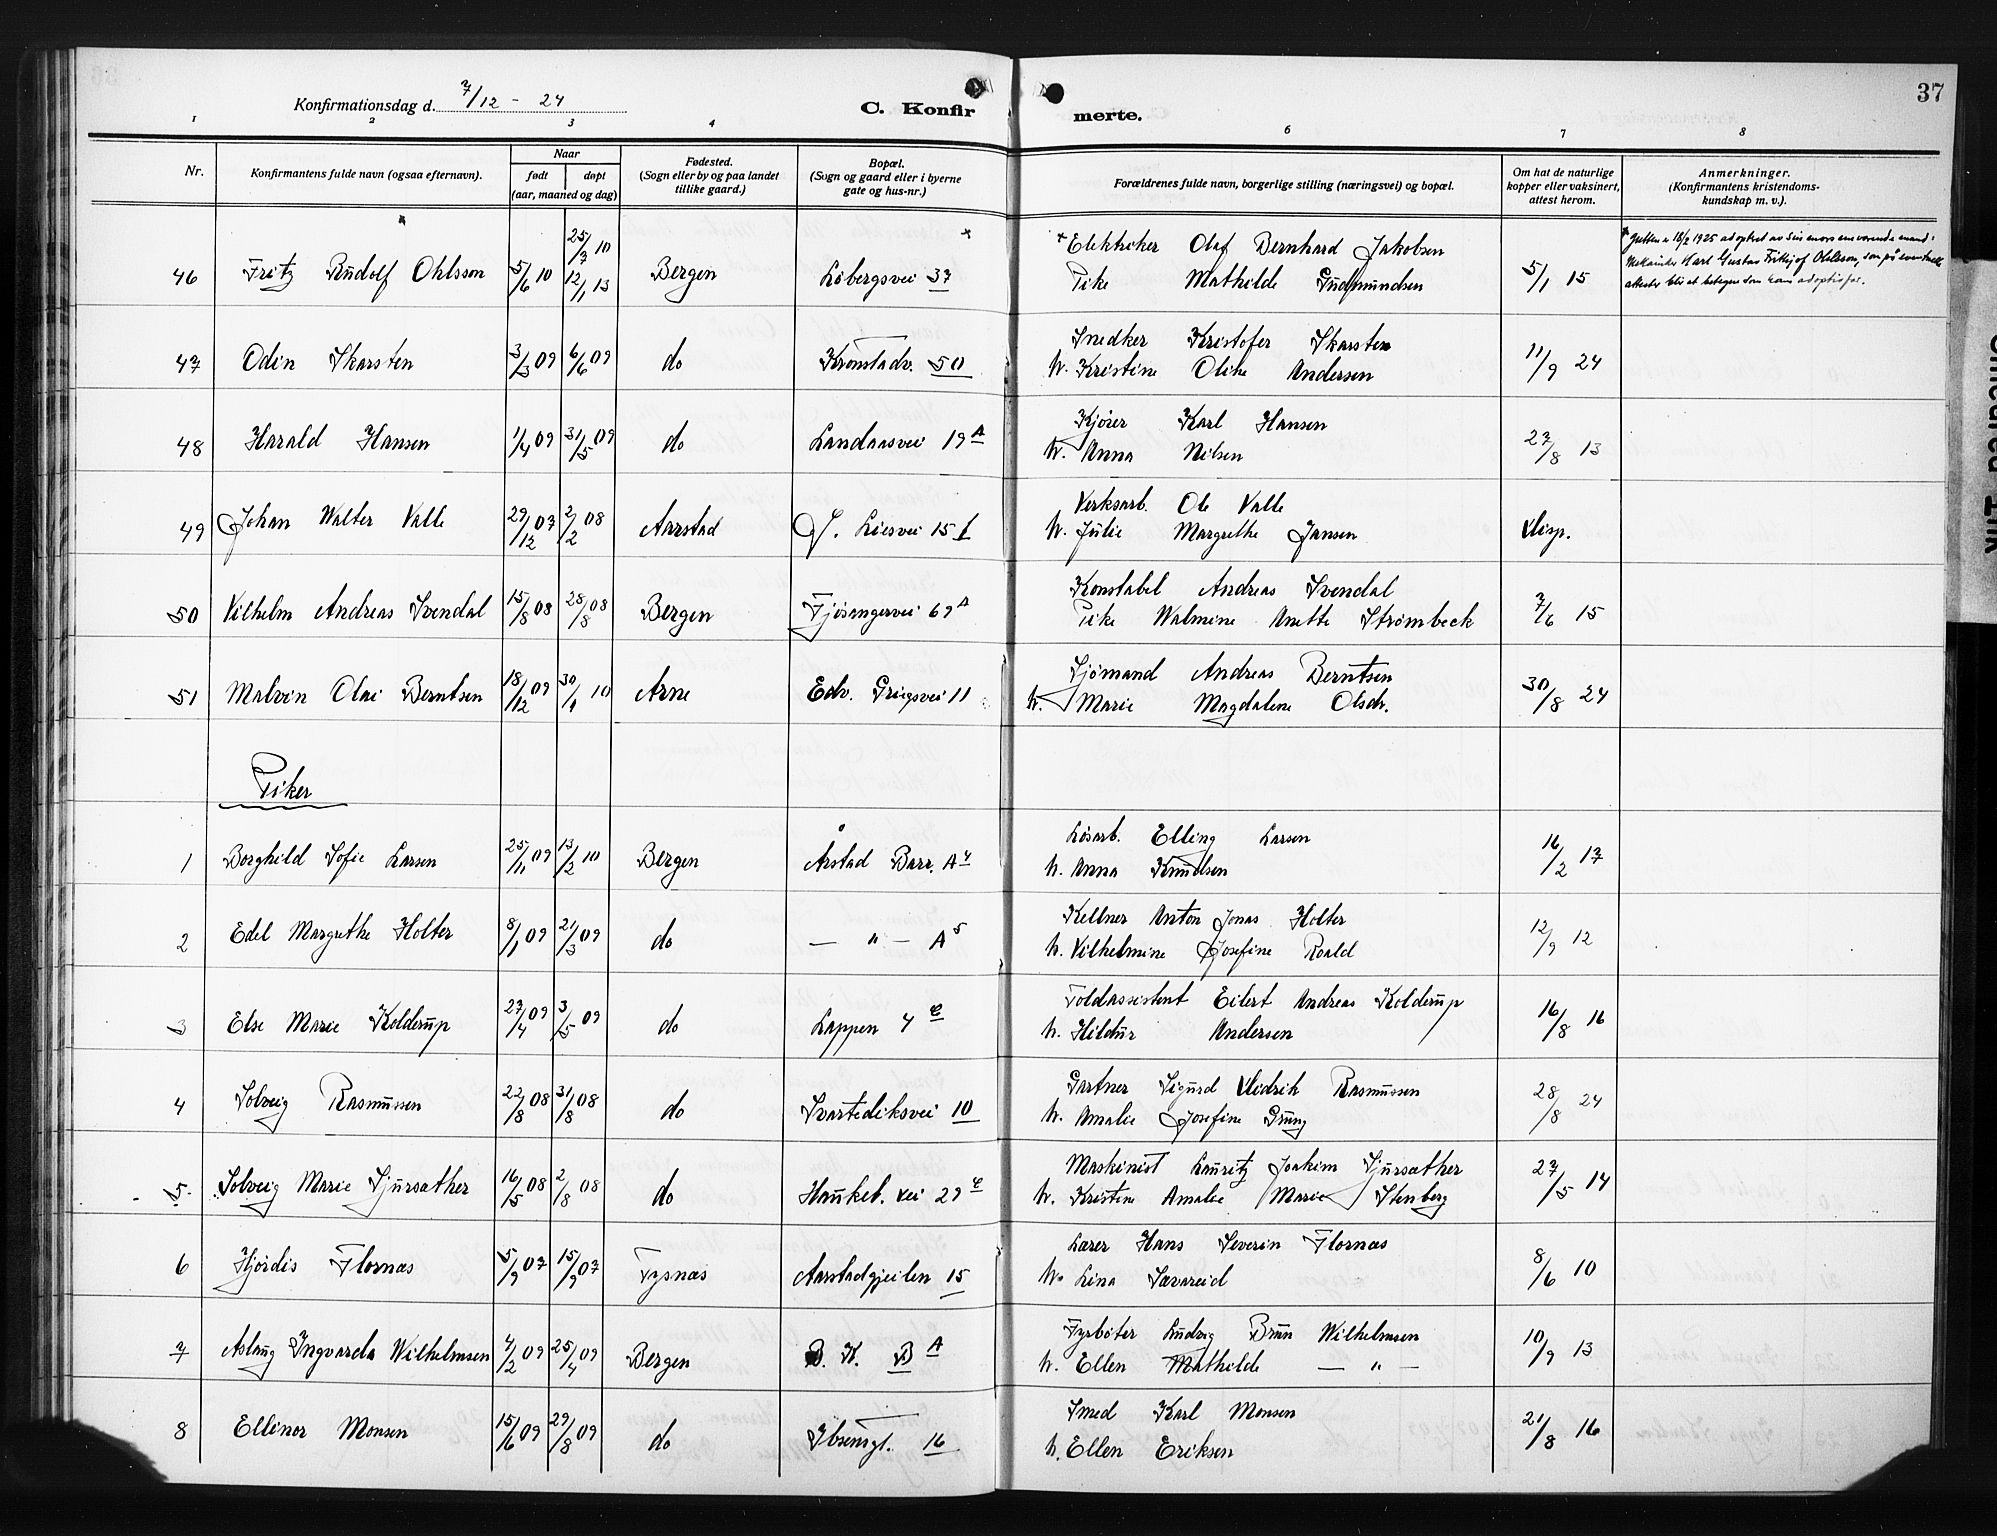 37
Konfirmationsdag d. 7/12 - 24
C. Konfirmerte.
1 2 3 4 6 7 8
Nr. Konfirmantens fulde navn (ogsaa efternavn). Naar født døpt (aar, maaned og dag) Fødested. (Sogn eller by og paa landet tillike gaard.) Bopæl. (Sogn og gaard eller i byerne gate og hus-nr.) Forældrenes fulde navn, borgerlige stilling (næringsvei) og bopæl. Om hat de naturlige kopper eller vaksinert, attest herom. Anmerkninger. (Konfirmantens kristendoms-kundskap m. v.).
46 Fritz Rudolf Ohlsson 5/6 10 25/7 10 12/1 13 Bergen Löbergsvei 37 + Elektriker Olaf Bernhard Jakobsen
Pike Mathilde Gudmundsen 5/1 15
Gutten er 18/2 1925 adoptret av sin mors nuværende mand:
Mekaniker Karl Gustav Fritjof Ohlsson, som på eventuelle
attester blir at betegne som hans adoptivfar.
47 Odin Skarsten 3/3 09 6/6 09 do Kronstadv. 50 Snedker Kristofer Skarsten
h. Kristine Oline Andersen 11/9 24
48 Harald Hansen 1/4 09 31/5 09 do Landaasvei 19 A Kjører Karl Hansen
h. Anna Nilsen 27/8 13
49 Johan Walter Valle 29/12 07 2/2 08 Aarstad J. Liesvei 15 I Verksarb. Ole Valle
h. Julie Margrethe Jansen Disp.
50 Vilhelm Andreas Svendal 15/8 08 28/8 08 Bergen Fjösangervei 69 A Konstabel Andreas Svendal
Pike Walmine Anette Strömbeck 7/6 15
51 Malvin Olai Berntsen 18/12 09 30/1 10 Arne Edv. Griegsvei 11 Sjömand Andreas Berntsen
h. Marie Magdalene Olsdr. 30/8 24
Piker
1 Borghild Sofie Larsen 25/11 09 13/2 10 Bergen Årstad Barr. A 4 Løsarb. Elling Larsen
h. Anna Knudsen 16/2 17
2 Edel Margrethe Holter 8/1 09 21/3 09 do — " — A 5 Kellner Anton Jonas Holter
h. Vilhelmine Josefine Roald 12/9 12
3 Else Marie Kolderup 27/4 09 3/5 09 do Lappen 4 e Toldassistent Eilert Andreas Kolderup
h. Hildur Andersen 16/8 16
4 Solveig Rasmussen 22/8 08 31/8 08 do Svartediksvei 10 Gartner Sigurd Didrik Rasmussen
h. Amalie Josefine Grung 28/8 24
5 Solveig Marie Sjursæther 16/5 08 2/8 08 do Haukel. vei 29 e Maskinist Lauritz Joakim Sjursæther
h. Kristine Amalie Marie Stenberg 27/5 14
6 Hjördis Flornæs 5/9 07 15/9 07 Tysnæs Aarstadgjeilen 15 Lærer Hans Severin Flornæs
h. Lina Sævareid 8/6 10
7 Aslaug Ingvarda Wilhelmsen 4/2 09 25/4 09 Bergen B. K. B A Fyrbøter Ludvig Brun Wilhelmsen
h. Ellen Mathilde — " — 10/9 13
8 Ellinor Monsen 15/6 09 29/8 09 do Ibsensgt. 16 Smed Karl Monsen
h. Ellen Eriksen 21/8 16